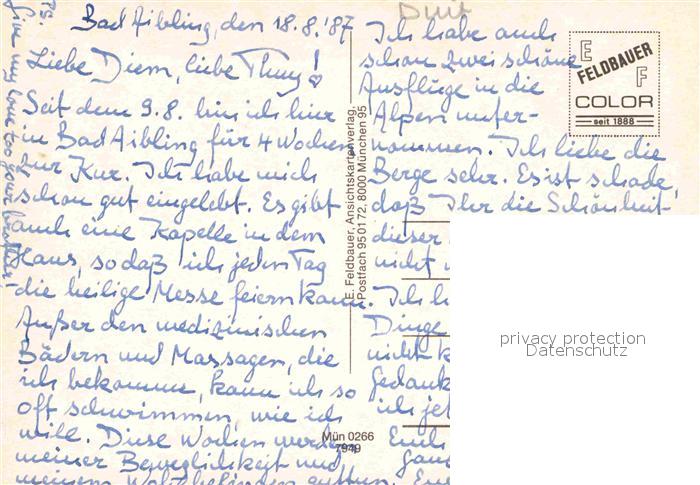 Bad Aibling, den 18.8.'87
Liebe Diem, liebe Thuy!
Seit dem 9.8. bin ich hier
in Bad Aibling für 4 Wochen
zur Kur. Ich habe mich
schon gut eingelebt. Es gibt
auch eine Kapelle in dem
Haus, so daß ich jeden Tag
die heilige Messe feiern kann.
Außer den medizinischen
Bädern und Massagen, die
ich bekomme, kann ich so
oft schwimmen, wie ich
will. Diese Wochen werden
meiner Beweglichkeit und
meinem Wohlbefinden guttun.
Ich habe auch
schon zwei schöne
Ausflüge in die
Alpen unter-
nommen. Ich liebe die
Berge sehr. Es ist schade,
daß Ihr die Schönheit
dieser
nicht
Ich
Dinge
nicht
Gedank
ich
Euch
PS:
Give my love too your brother!
E. Feldbauer, Ansichtskartenverlag,
Postfach 950172, 8000 München 95
Mün 0266
7949
E
FELDBAUER
F
COLOR
seit 1888
privacy protection
Datenschutz